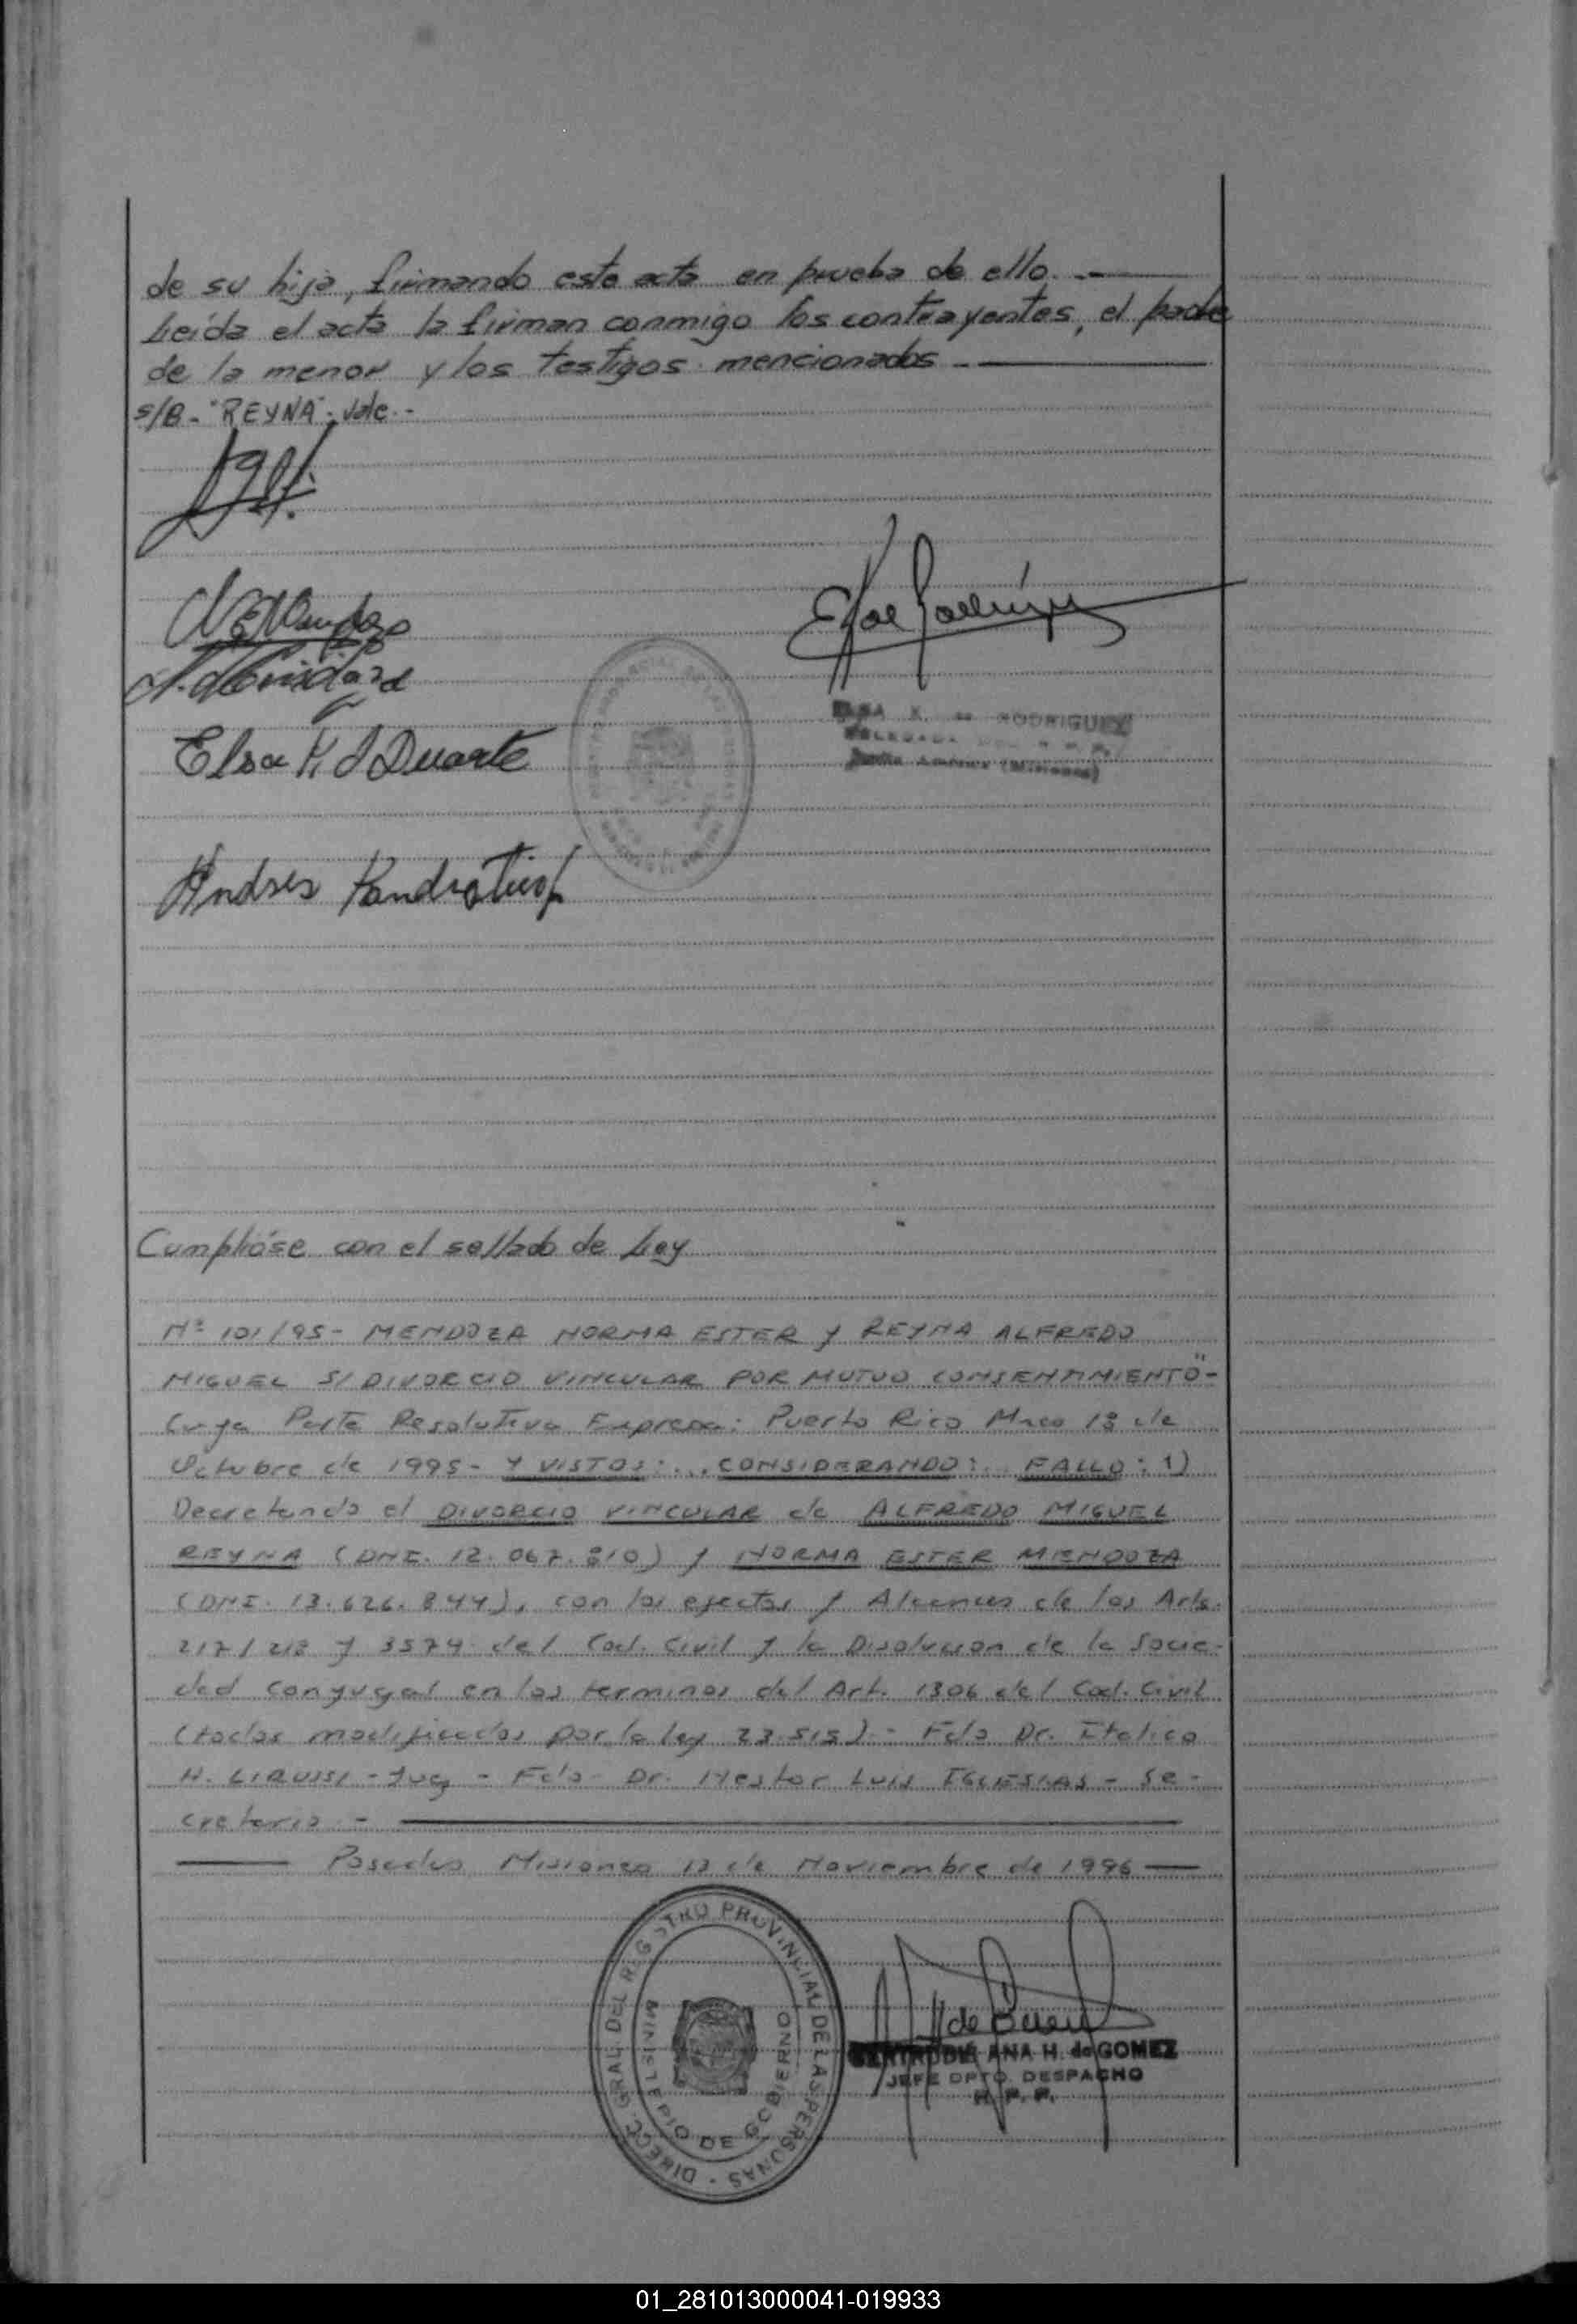 de su hija, firmando este acta en prueba de ello. -
Leída el acta la firman conmigo los contrayentes, el padre
de la menor y los testigos mencionados -
S/B - "REYNA": Vale. -
Elsa K d Duarte
RODRIGUEZ
Andres
Cumpliáse con el sellado de Ley
Nº 101/95 - MENDOZA NORMA ESTER y REYNA ALFREDO
MIGUEL S/ DIVORCIO VINCULAR POR MUTUO CONSENTIMIENTO" -
Cuya Parte Resolutiva Expresa: Puerto Rico Mnes 18 de
Octubre de 1995 - Y VISTOS: ... CONSIDERANDO: .. FALLO: 1)
Decretando el DIVORCIO VINCULAR de ALFREDO MIGUEL
REYNA (DNI. 12.067.810) y NORMA ESTER MENDOZA
(DNI. 13.626.844), con los efectos y Alcances de los Arts.
217/218 y 3574 del Cod. Civil y la Disolucion de la Socie-
dad conyugal en los terminos del Art. 1306 del Cod. Civil
(todos modificados por la ley 23.515). - Fdo Dr. Italico
H. - Juez - Fdo - Dr. Nestor Luis IGLESIAS - Se-
cretario -
Posadas Misiones 13 de Noviembre de 1996
DIRECC. GRAL. DEL REGISTRO PROVINCIAL DE LAS PERSONAS
MINISTERIO DE GOBIERNO
ANA H. de GOMEZ
JEFE DPTO. DESPACHO
R. P. P.
01_281013000041-019933